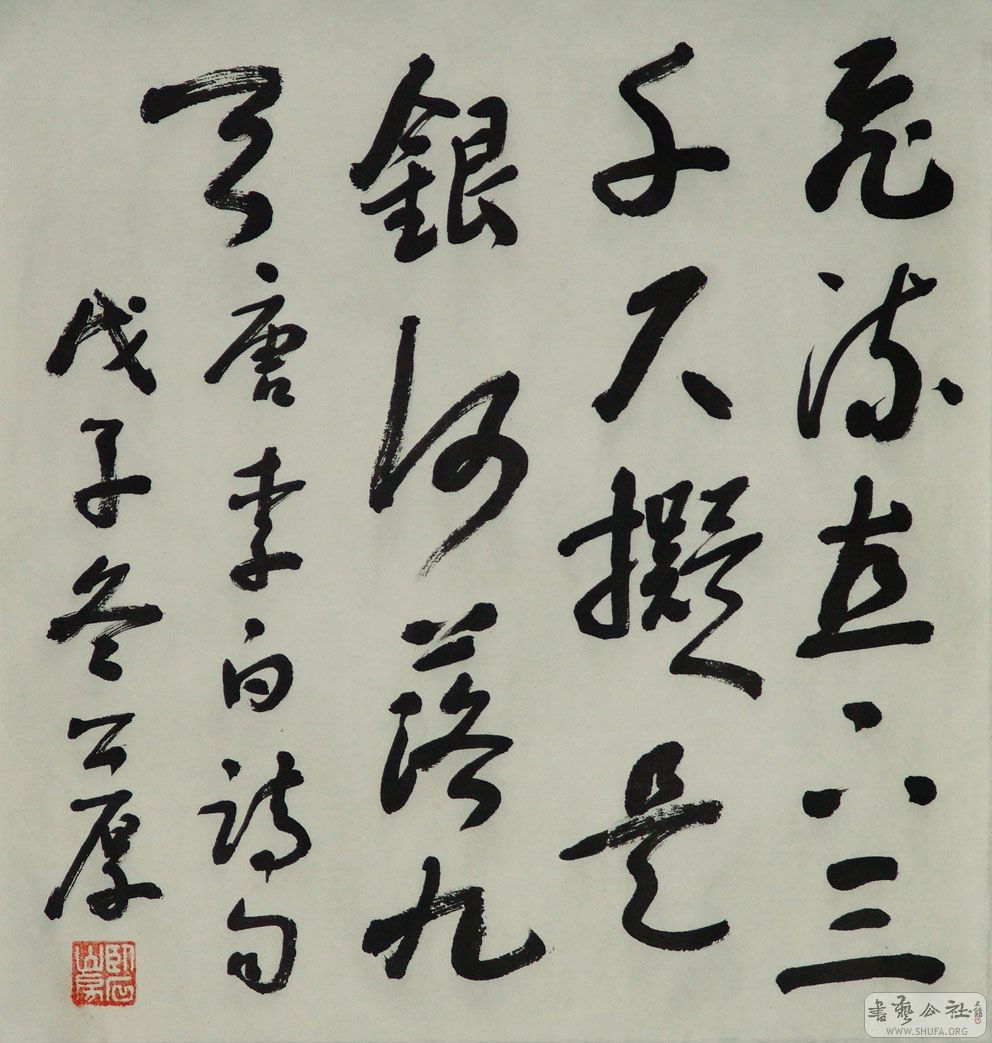 飛流直下三
千尺擬是
銀河落九
天唐李白詩句
戊子冬公厚
書藝公社
WWW.SHUFA.ORG